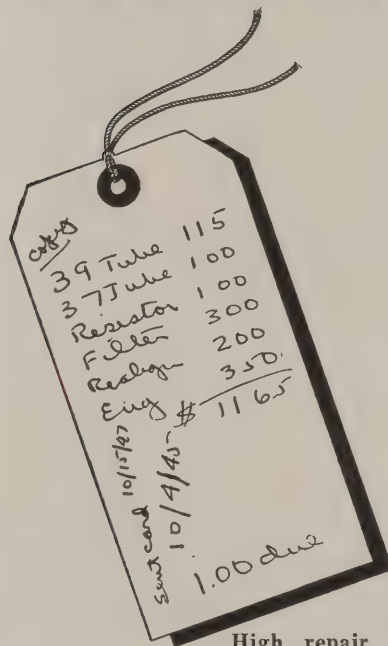 copy
39 Tube 115
37 Tube 100
Resistor 100
Filter 300
Realign 200
Eng 350.
$ 1165
Sent card 10/15/47
10/4/45
1.00 due
High repair